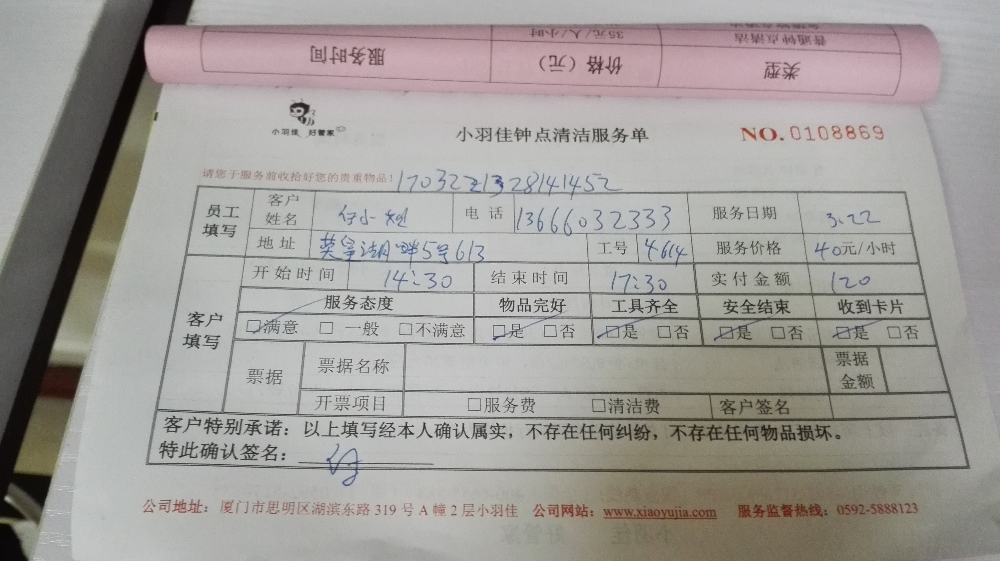 服务时间 价格（元） 类型
35元/人/小时 普通钟点清洁
小羽佳 好管家
小羽佳钟点清洁服务单
NO. 0108869
请您于服务前收拾好您的贵重物品！
员工填写 客户姓名 何小姐 电话 13666032333 服务日期 3.22
地址 英皇湖畔5号613 工号 4614 服务价格 40元/小时
客户填写 开始时间 14:30 结束时间 17:30 实付金额 120
服务态度 物品完好 工具齐全 安全结束 收到卡片
☑满意 □一般 □不满意 ☑是 □否 ☑是 □否 ☑是 □否 ☑是 □否
票据 票据名称 票据金额
开票项目 □服务费 □清洁费 客户签名
客户特别承诺：以上填写经本人确认属实，不存在任何纠纷，不存在任何物品损坏。
特此确认签名：何
公司地址：厦门市思明区湖滨东路319号A幢2层小羽佳 公司网站：www.xiaoyujia.com 服务监督热线：0592-5888123